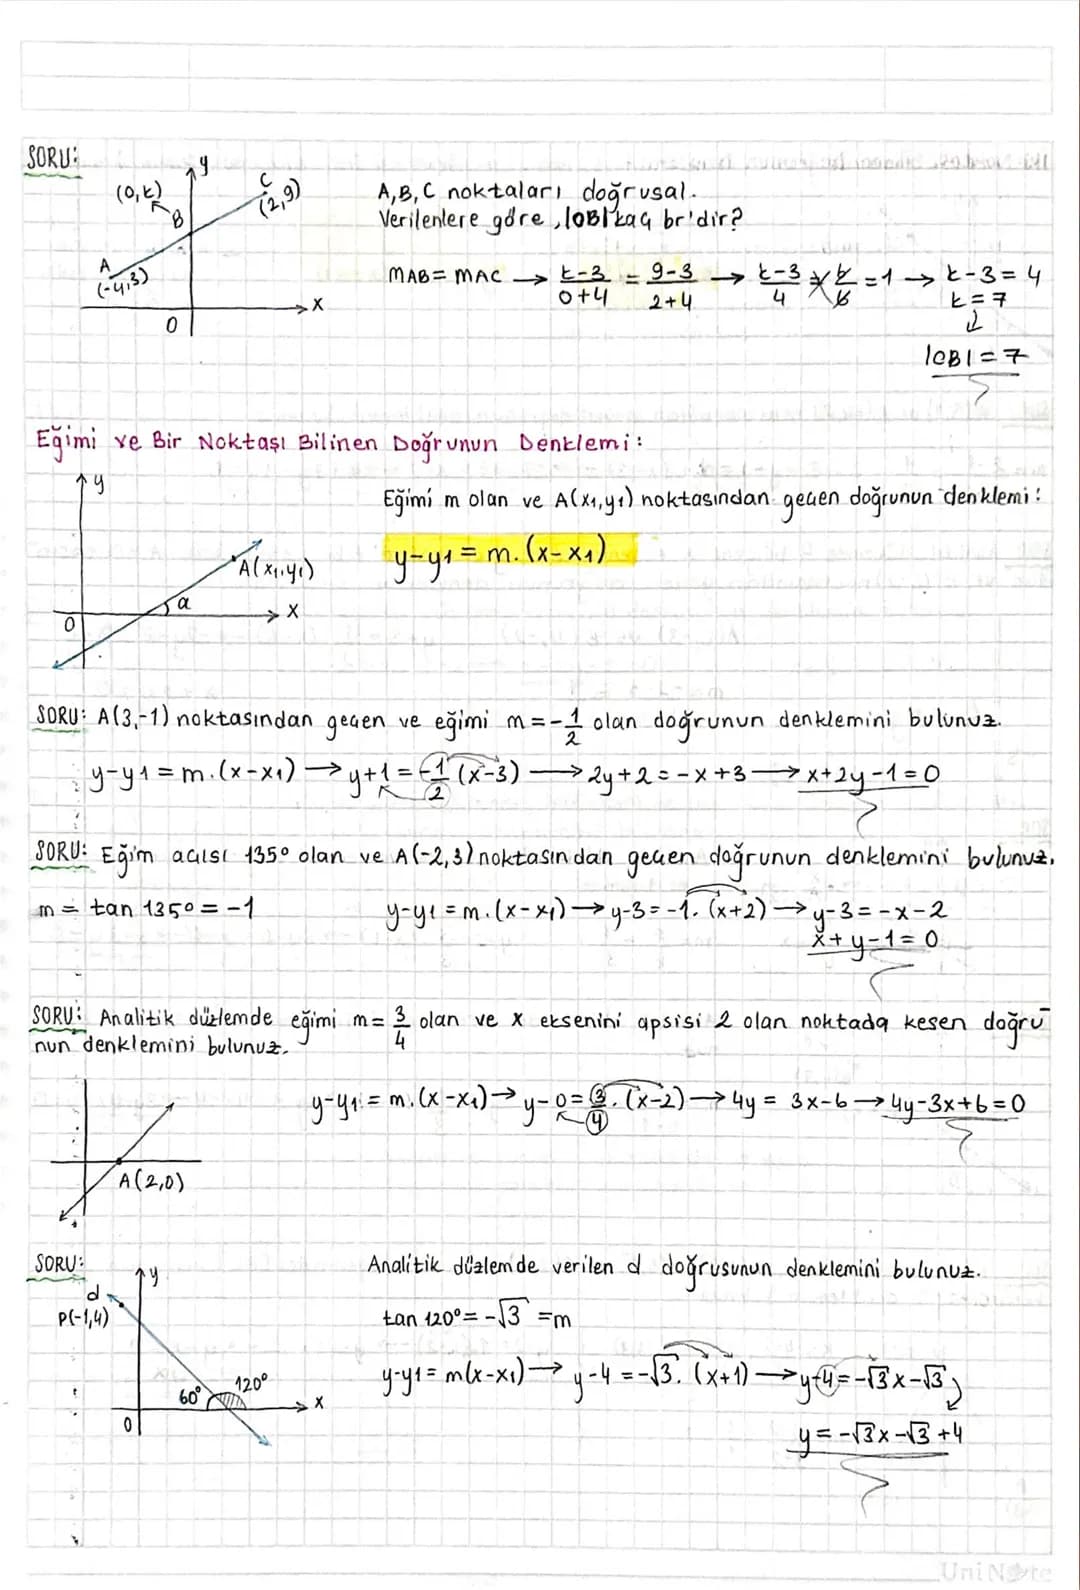 SORU:
y
(0,k)
B
C
(2,9)
A
(-4,3)
0
x
A,B,C noktaları doğrusal.
Verilenlere göre, |OB| kaç br'dir?
MAB = MAC → k-3/0+4 = 9-3/2+4 → k-3/4 = 6/6 = 1 → k-3 = 4
k = 7
|OB| = 7
Eğimi ve Bir Noktası Bilinen Doğrunun Denklemi:
y
A(x₁,y₁)
α
x
0
Eğimi m olan ve A(x₁,y₁) noktasından geçen doğrunun denklemi:
y-y₁ = m.(x-x₁)
SORU: A(3,-1) noktasından geçen ve eğimi m=-1/2 olan doğrunun denklemini bulunuz.
y-y₁ = m.(x-x₁) → y+1 = -1/2 (x-3) → 2y+2 = -x+3 → x+2y-1=0
SORU: Eğim açısı 135° olan ve A(-2,3) noktasından geçen doğrunun denklemini bulunuz.
m = tan 135° = -1
y-y₁ = m.(x-x₁) → y-3 = -1.(x+2) → y-3 = -x-2
x+y-1 = 0
SORU: Analitik düzlemde eğimi m= 3/4 olan ve x eksenini apsisi 2 olan noktada kesen doğru
nun denklemini bulunuz.
y-y₁ = m.(x-x₁) → y-0 = 3/4.(x-2) → 4y = 3x-6 → 4y-3x+6=0
A(2,0)
SORU:
y
d
P(-1,4)
60°
120°
x
0
Analitik düzlemde verilen d doğrusunun denklemini bulunuz.
tan 120° = -√3 = m
y-y₁ = m(x-x₁) → y-4 = -√3.(x+1) → y-4 = -√3x-√3
y = -√3x-√3+4
UniNote